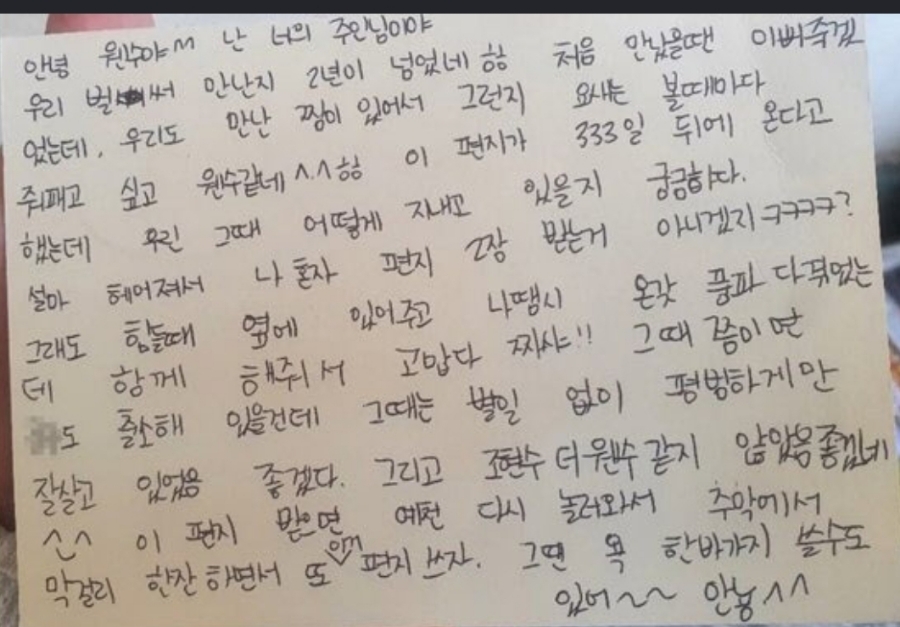 안녕 원수야 ^^ 난 너의 주인님이야
우리 벌써 만난지 2년이 넘었네 힝 처음 만났을땐 이뻐죽겠
었는데. 우리도 만난 찜이 있어서 그런지 요새는 볼때마다
줘패고 싶고 원수같네 ^.^ 힝 이 편지가 333일 뒤에 온다고
했는데 우린 그때 어떻게 지내고 있을지 궁금하다.
설마 헤어져서 나 혼자 편지 2장 받는거 아니겠지 ㅋㅋㅋㅋ?
그래도 힘들때 옆에 있어주고 나땜시 온갖 풍파 다 겪었는
데 함께 해줘서 고맙다 짜샤!! 그때 쯤이면
도 출소해 있을건데 그때는 별일 없이 평범하게만
잘살고 있었음 좋겠다. 그리고 조현수 더 원수 같지 않았음 좋겠네
^^ 이 편지 받으면 예전 다시 놀러와서 주막에서
막걸리 한잔 하면서 또 편지 쓰자. 그땐 욕 한바가지 쓸수도
있어~~ 안뇽 ^^